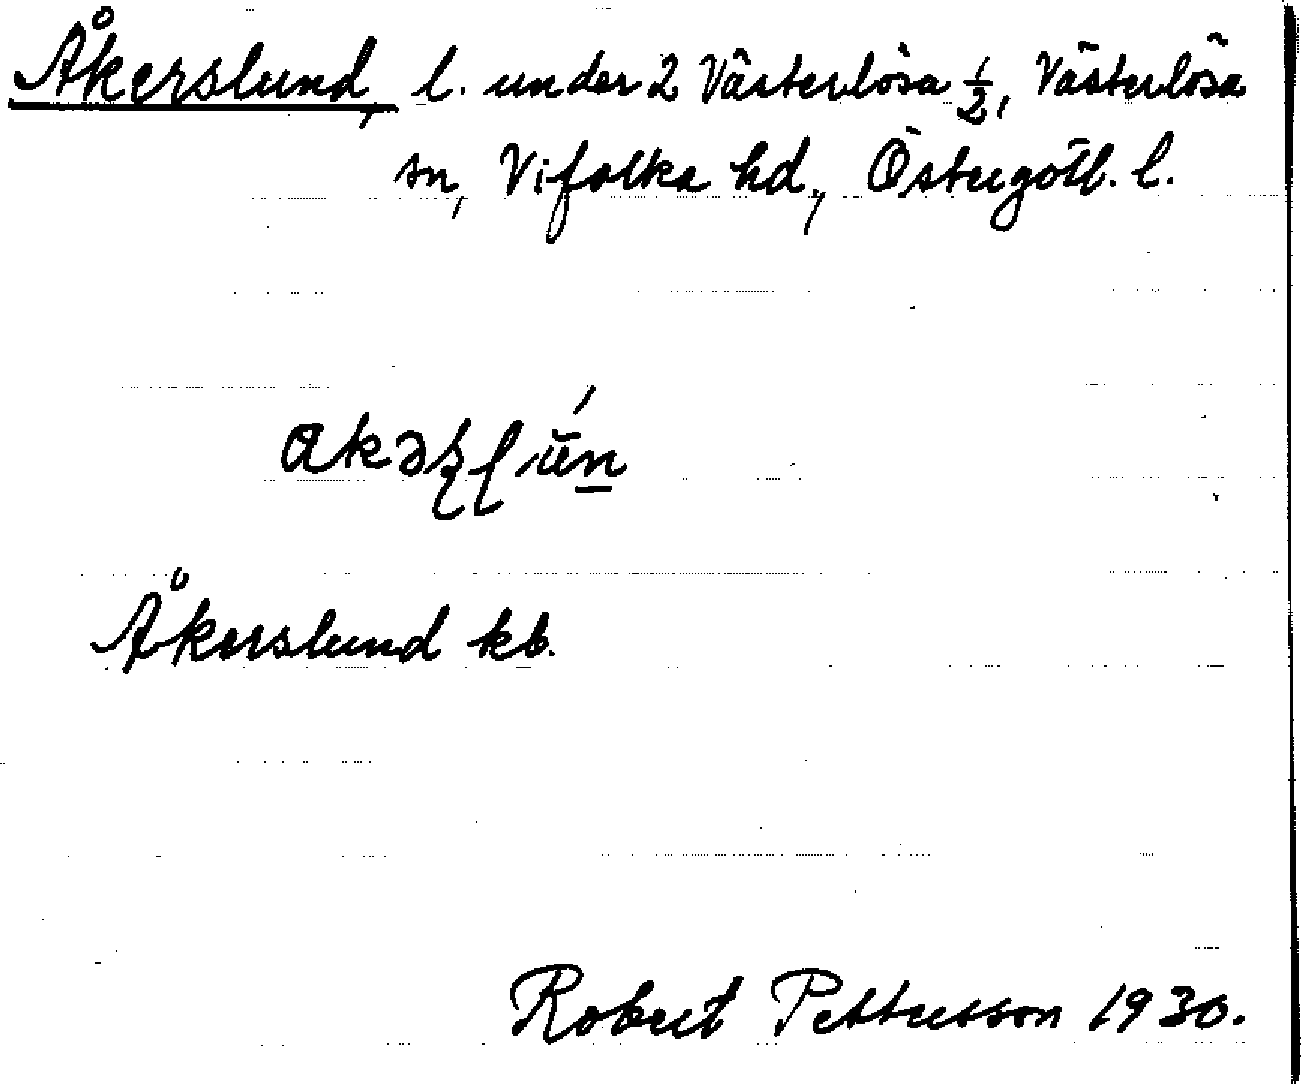 Åkerslund, l. under 2 Västerlösa ½, Västerlösa
sn, Vifolka hd., Östergötl. l.
Åkerslund kb.
Robert Pettersson 1930.